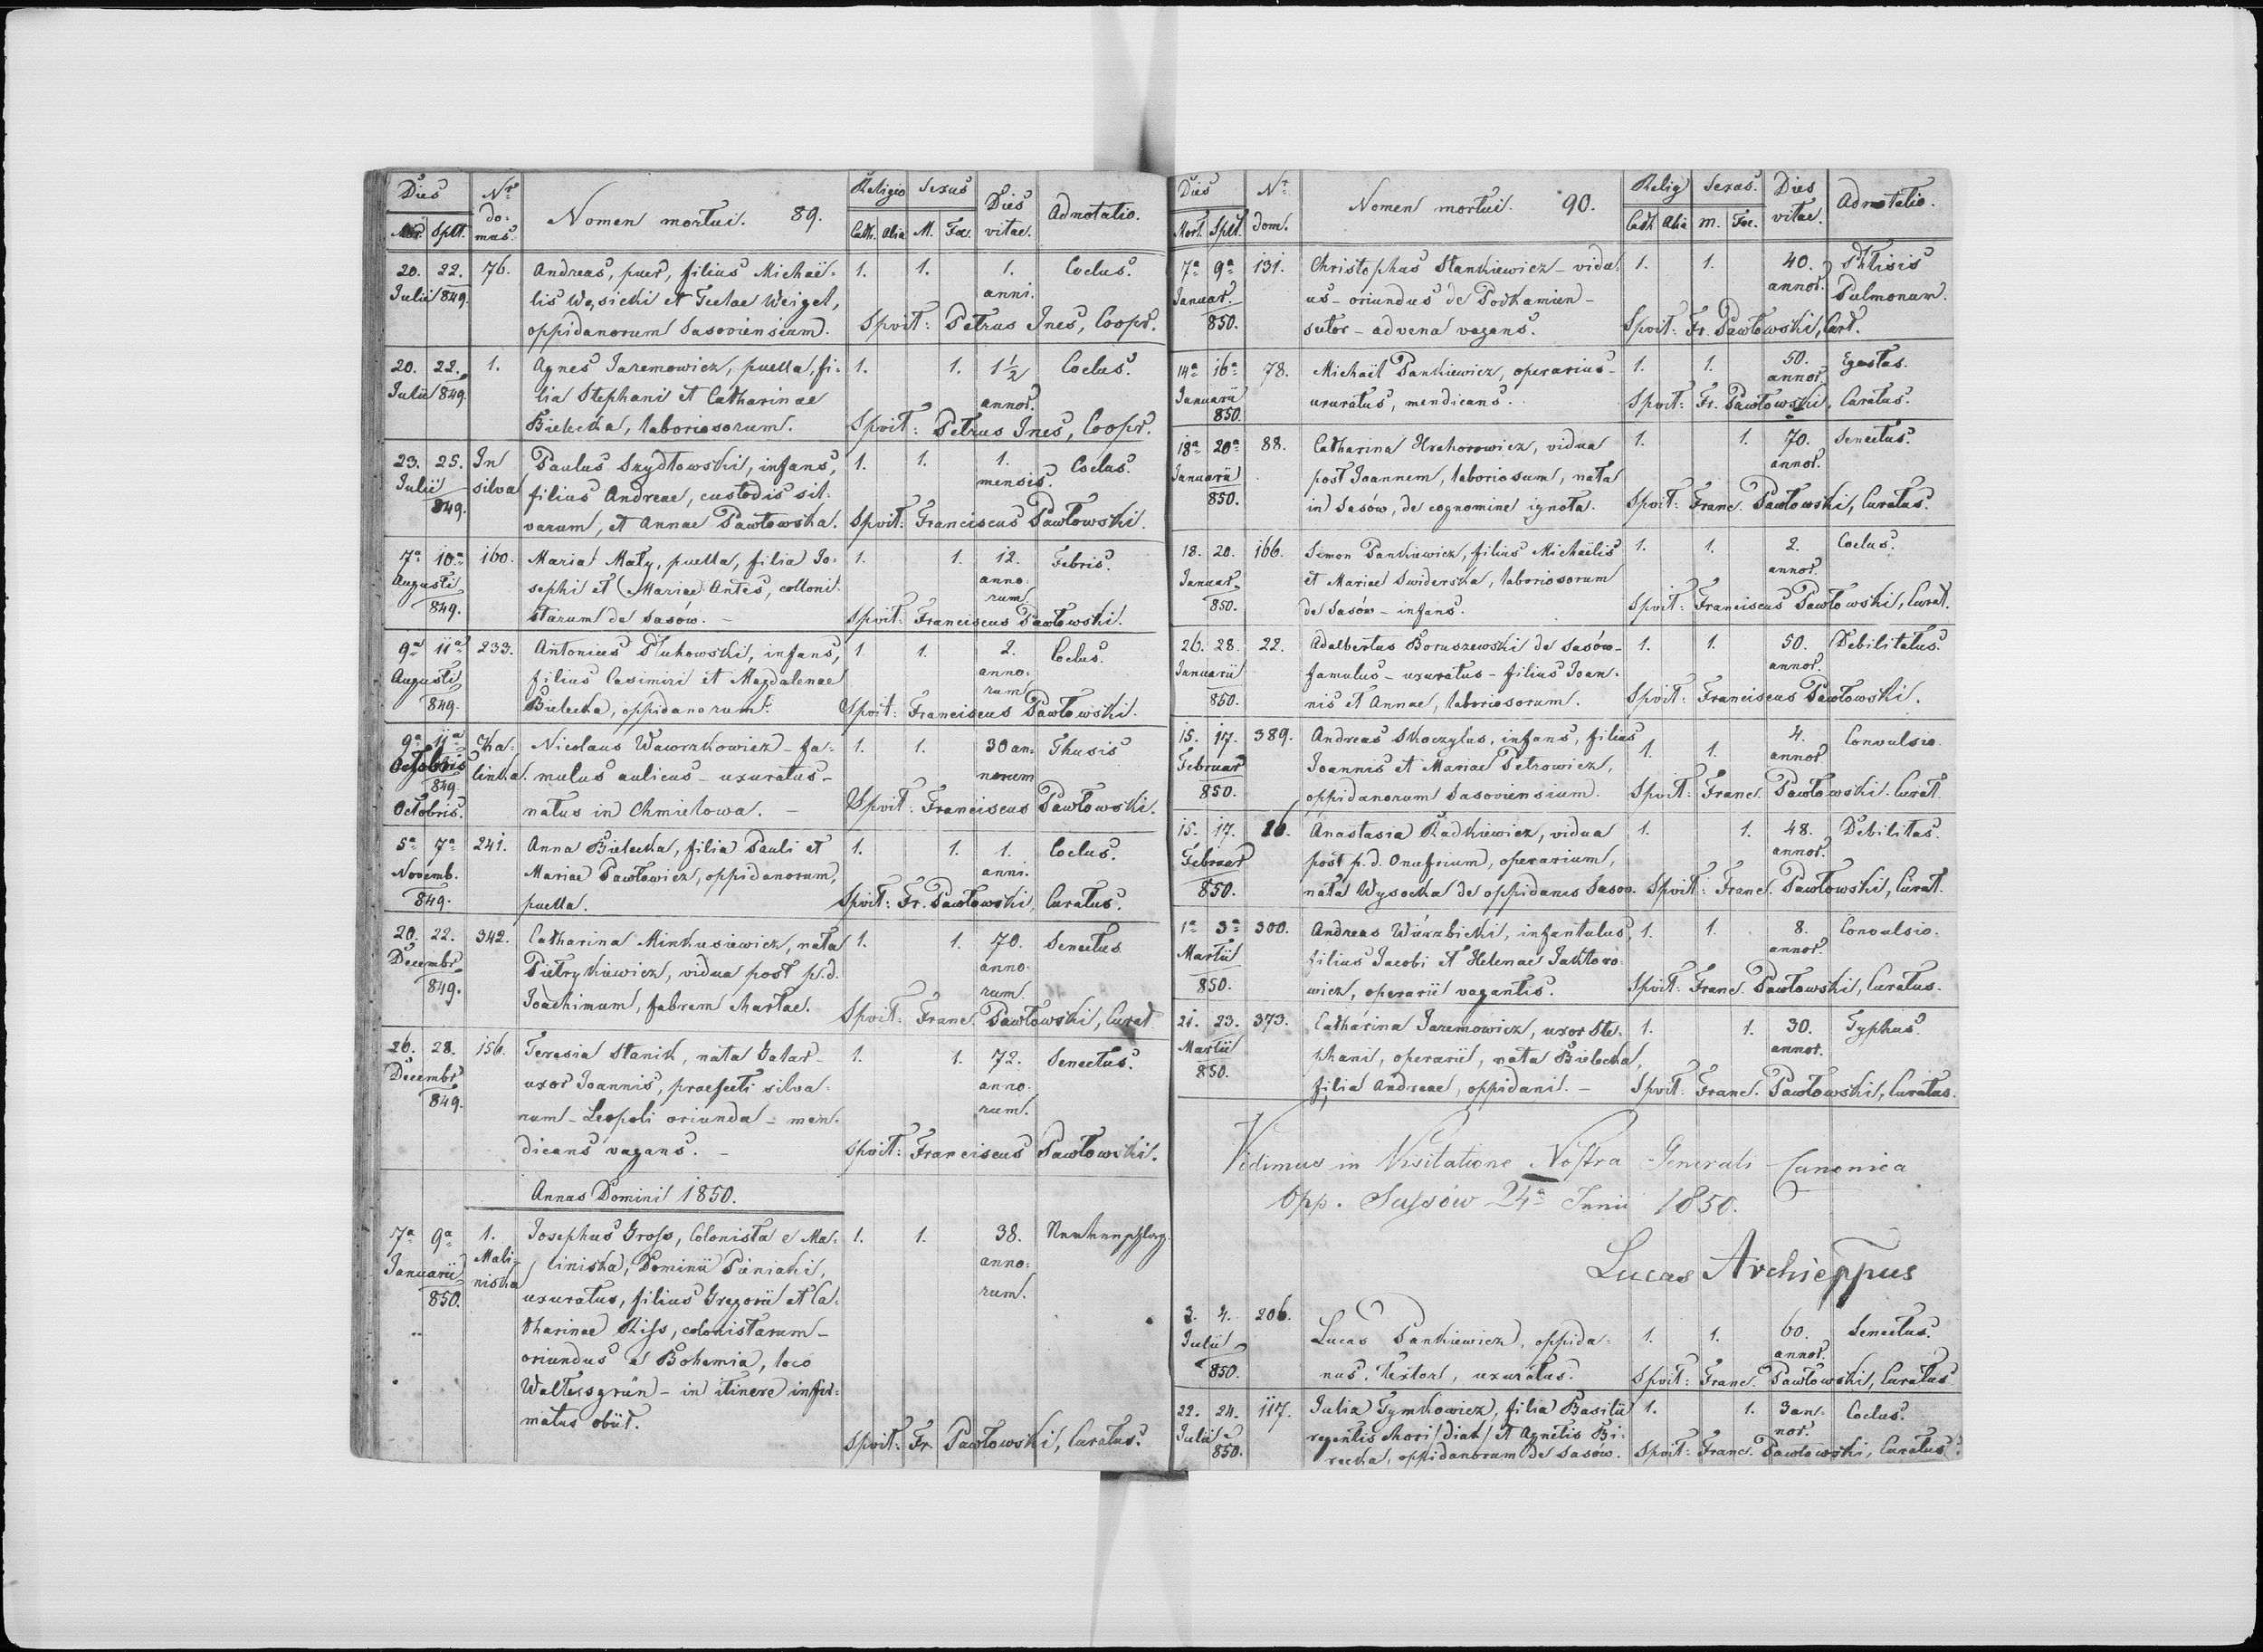 Dies Nr. do- mus. Nomen mortui. 89. Religio Sexus Dies vitae. Adnotatio.
Mor. Splt. Cath. Alia M. Foe.
20. 22. 76. Andreas, puer, filius Michaë- 1. 1. 1. Coelus.
Julii 849. lis Wąsicki et Teclae Weigel, anni.
oppidanorum Sasoviensium. Spvit: Petrus Ines, Coopr.
20. 22. 1. Agnes Jaremowicz, puella, fi- 1. 1. 1½ Coelus.
Julii 849. lia Stephani et Catharinae annor.
Bielecka, laboriosorum. Spvit: Petrus Ines, Coopr.
23. 25. In Paulus Szydłowski, infans, 1. 1. 1. Coelus.
Julii silva filius Andreae, custodis sil- mensis.
849. varum, et Annae Pawłowska. Spvit: Franciscus Pawłowski.
7a 10a 160. Maria Mały, puella, filia Jo- 1. 1. 12. Febris.
Augusti sephi et Mariae Antes, colloni- anno-
849. starum de Sasów. – rum. Spvit: Franciscus Pawłowski.
9a 11a 233. Antonius Pluhowski, infans, 1. 1. 2. Coelus.
Augusti filius Casimiri et Magdalenae anno-
849. Bielecka, oppidanorum. rum Spvit: Franciscus Pawłowski.
9a 11a Ka- Nicolaus Wawrzkowicz – fa- 1. 1. 30 an- Thusis
Octobris linka. mulus aulicus – uxuratus – norum
849.
Octobris. natus in Chmielowa. – Spvit: Franciscus Pawłowski.
5a 7a 241. Anna Bielecka, filia Pauli et 1. 1. 1. Coelus.
Novemb. Mariae Pawłowicz, oppidanorum, anni.
849. puella. Spvit: Fr. Pawłowski, Curatus.
20. 22. 342. Catharina Minkusiewicz, nata 1. 1. 70. Senectus
Decembr. Pietrykiewicz, vidua post p.d. anno-
849. Joachimum, fabrem chartae. rum. Spvit: Franc. Pawłowski, Curat.
26. 28. 156. Teresia Stanik, nata Gatar – 1. 1. 72. Senectus.
Decembr. uxor Joannis, praefecti silva- anno-
849. rum – Leopoli oriunda – men- rum.
dicans vagans. – Spvit: Franciscus Pawłowski.
Annus Domini 1850.
7a 9a 1. Josephus Gross, Colonista e Ma- 1. 1. 38.
Januarii Mali- liniska, Dominii Pieniaki, anno-
850. niska uxuratus, filius Gregorii et Ca- rum.
tharinae Riss, colonistarum –
oriundus e Bohemia, loco
Waltersgrün – in itinere infir-
matus obiit.
Spvit: Fr. Pawłowski, Curatus.
Dies Nr. dom. Nomen mortui. 90. Relig Sexus. Dies vitae. Adnotatio.
Mort. Splt. Cath Alia M. Foe.
7a 9a 131. Christophus Stankiewicz – vidu- 1. 1. 40. Phtisis
Januar. us – oriundus de Podkamien – annor. Pulmonum.
850. sutor – advena vagans. Spvit: Fr. Pawłowski, Curt.
14a 16a 78. Michael Pankiewicz, operarius – 1. 1. 50. Egestas.
Januarii uxuratus, mendicans. annor.
850. Spvit: Fr. Pawłowski, Curatus.
18a 20a 88. Catharina Hrehorowicz, vidua 1. 1. 70. Senectus.
Januarii post Joannem, laboriosum, nata annor.
850. in Sasów, de cognomine ignota. Spvit: Franc. Pawłowski, Curatus.
18. 20. 166. Simon Pankiewicz, filius Michaëlis 1. 1. 2. Coelus.
Januar. et Mariae Swiderska, laboriosorum annor.
850. de Sasów – infans. Spvit: Franciscus Pawłowski, Curat.
26. 28. 22. Adalbertus Boruszewski de Sasów – 1. 1. 50. Debilitatus.
Januarii famulus – uxuratus – filius Joan- annor.
850. nis et Annae, laboriosorum. Spvit: Franciscus Pawłowski.
15. 17. 389. Andreas Skoczylas, infans, filius 1. 1. 4. Convulsio.
Februar Joannis et Mariae Petrowicz, annor.
850. oppidanorum Sasoviensium. Spvit: Franc. Pawłowski. Curat.
15. 17. 26. Anastasia Radkiewicz, vidua 1. 1. 48. Debilitas.
Februar post p.d. Onufrium, operarium, annor.
850. nata Wysocka de oppidanis Sasov. Spvit: Franc. Pawłowski, Curat.
1a 3a 300. Andreas Wierzbicki, infantulus, 1. 1. 8. Convulsio.
Martii filius Jacobi et Helenae Jaktoro- annor.
850. wicz, operarii vagantis. Spvit: Franc. Pawłowski, Curatus.
21. 23. 373. Catharina Jaremowicz, uxor Ste- 1. 1. 30. Typhus.
Martii phani, operarii, nata Bielecka, annor.
850. filia Andreae, oppidani. – Spvit: Franc. Pawłowski, Curatus.
Vidimus in Visitatione Nostra Generali Canonica
Opp. Sassów 24a Junii 1850.
Lucas Archieppus
3. 4. 206. Lucas Pankiewicz, oppida- 1. 1. 60. Senectus.
Julii annor.
850. nus. textor, uxuratus. Spvit: Franc. Pawłowski, Curatus
22. 24. 117. Julia Tymkowicz, filia Basilii 1. 1. 3 an- Coelus.
Julii regentis chori /diak/ et Agnetis Bi- nor.
850. recka, oppidanorum de Sasów. Spvit: Franc. Pawłowski, Curatus.